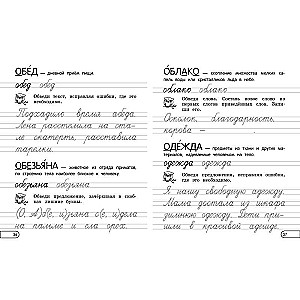 ОБЕ́Д — дневной приём пищи.
обед обед
Обведи текст, исправляя ошибки, где это
необходимо.
Подхадило время обеда.
Лена расстелила на ста-
ле скатерть, расставила
тарелки.
ОБЕЗЬЯ́НА — животное из отряда приматов,
по строению тела наиболее близкое к человеку.
обезьяна обезьяна
Обведи предложение, зачёркивая в скоб-
ках лишние буквы.
на пальме и ела орех.
36
О́БЛАКО — скопление множества мелких ка-
пель воды или кристалликов льда в небе.
облако облако
Обведи слова. Составь новое слово из
первых слогов приведённых слов. Запи-
ши его.
Осколок, благодарность,
корова —
ОДЕ́ЖДА — предметы из ткани и других ма-
териалов, надеваемые человеком на тело.
одежда одежда
Обведи предложения, исправляя ошибки,
где это необходимо.
Я нашу свободную одежду.
Мама достала из шкафа
зимнюю одежду. Дети при-
шли в красивой адежде.
37